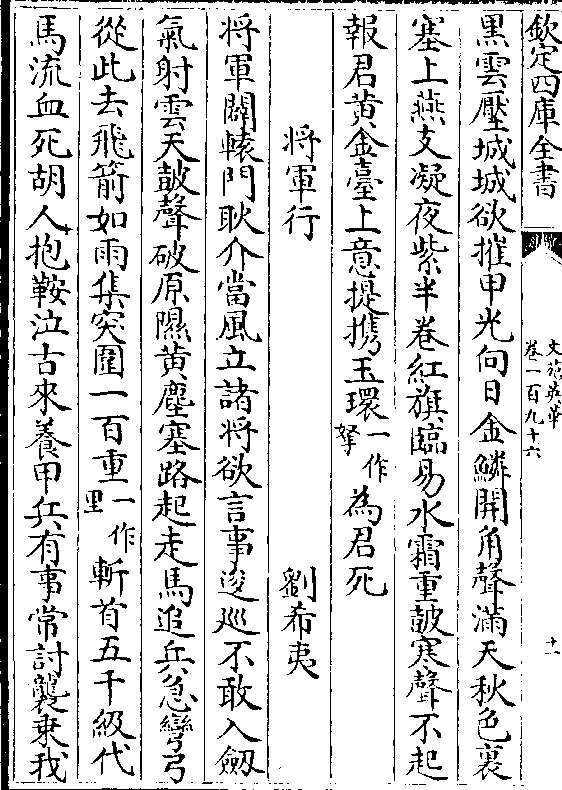 欽定四庫全書
文苑英華
卷一百九十六
十一
黒雲壓城城欲摧甲光向日金鱗開角聲滿天秋色裏
塞上燕支凝夜紫半卷紅旗臨易水霜重鼓寒聲不起
報君黄金臺上意提携玉環一作拏為君死
將軍行
劉希夷
將軍闢轅門耿介當風立諸將欲言事逡巡不敢入劒
氣射雲天鼓聲破原隰黄塵塞路起走馬追兵急彎弓
從此去飛箭如雨集突圍一百重一作里斬首五千級代
馬流血死胡人抱鞍泣古來養甲兵有事常討襲乗我